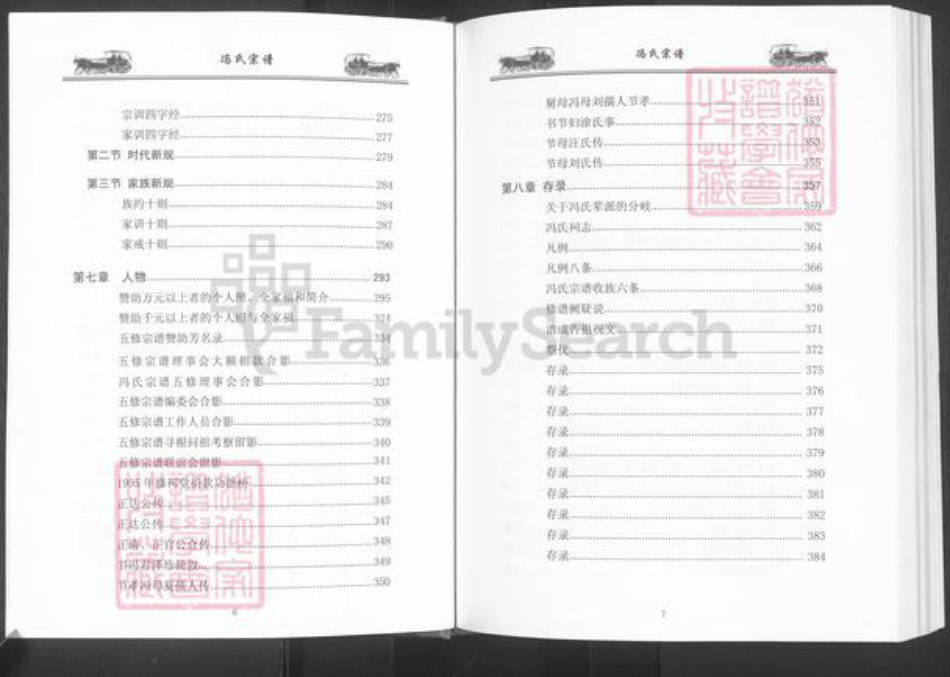 冯氏宗谱
宗训四字经 275
家训四字经 277
第二节 时代新规 279
第三节 家族新规 284
族约十则 284
家训十则 287
家戒十则 290
第七章 人物 293
赞助万元以上者的个人照、全家福和简介 295
赞助千元以上者的个人照与全家福 324
五修宗谱赞助芳名录 334
五修宗谱理事会大额捐款合影 336
冯氏宗谱五修理事会合影 337
五修宗谱编委会合影 338
五修宗谱工作人员合影 339
五修宗谱寻根问祖考察留影 340
五修宗谱联谊会留影 341
1995年修祠堂捐款功德榜 342
正达公传 345
正达公传 347
正、正官公合传 348
书冯君泽珍 349
节孝冯母夏孺人传 350
6
冯氏宗谱
舅母冯母刘孺人节孝 351
书节妇涂氏事 352
节母汪氏传 353
节母刘氏传 355
第八章 存录 357
关于冯氏辈派的分岐 359
冯氏祠志 362
凡例 364
凡例八条 366
冯氏宗谱收族六条 368
修谱阙疑说 370
谱成告祖祝文 371
祭仪 372
存录 375
存录 376
存录 377
存录 378
存录 379
存录 380
存录 381
存录 382
存录 383
存录 384
7
FamilySearch